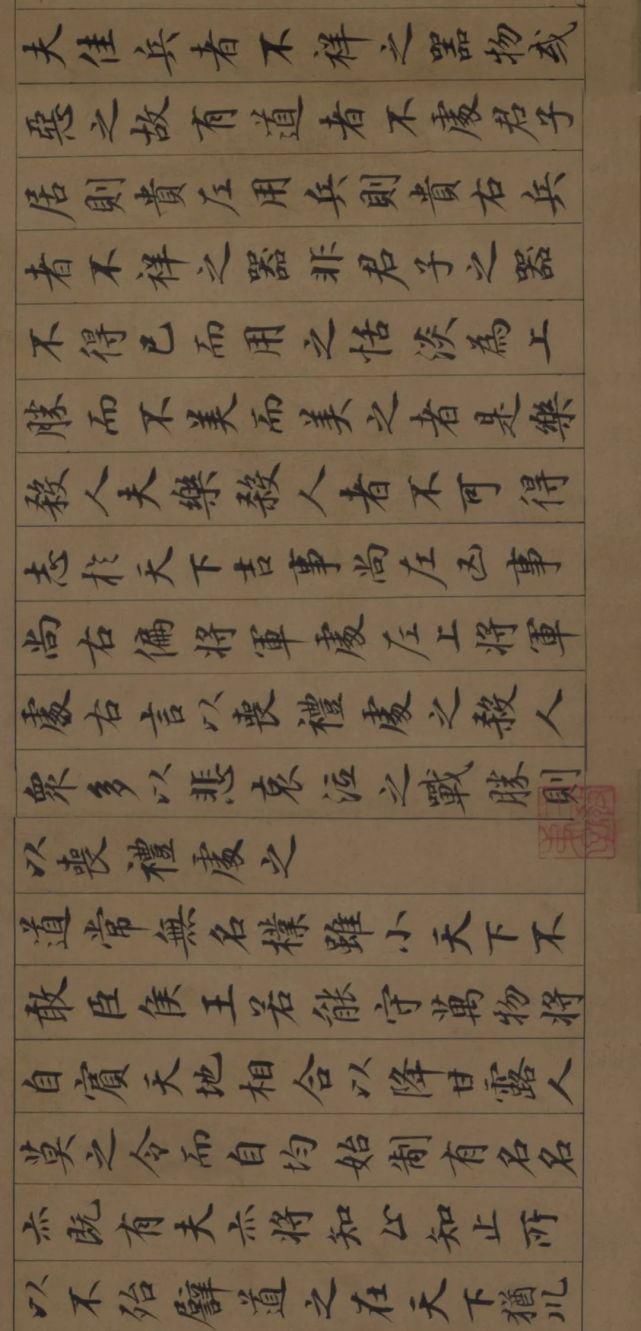 夫佳兵者不祥之器物或
惡之故有道者不處君子
居則貴左用兵則貴右兵
者不祥之器非君子之器
不得已而用之恬淡為上
勝而不美而美之者是樂
殺人夫樂殺人者不可得
志於天下吉事尚左凶事
尚右偏將軍處左上將軍
處右言以喪禮處之殺人
衆多以悲哀泣之戰勝則
以喪禮處之
道常無名樸雖小天下不
敢臣侯王若能守萬物將
自賓天地相合以降甘露人
莫之令而自均始制有名名
亦既有夫亦將知止知止所
以不殆譬道之在天下猶川